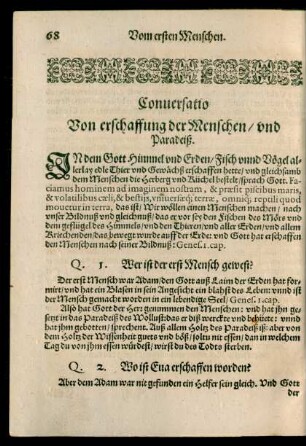 68 Vom ersten Menschen.
Conuersatio
Von erschaffung der Menschen / vnd
Paradeiß.
INdem Gott Himmel vnd Erden / Fisch vnnd Vögel al-
lerlay edle Thier vnd Gewächß erschaffen hette / vnd gleichsamb
dem Menschen die Herberg vnd Kuchel bestelt / sprach Gott. Fa-
ciamus hominem ad imaginem nostram, & præsit piscibus maris,
& volatilibus cæli, & bestijs, vniuersæq; terræ, omniq; reptili quod
mouetur in terra, das ist: Wir wöllen einen Menschen machen / nach
vnser Bildnuß vnd gleichnuß / das er vor sey den Fischen des Mörs vnd
dem geflügel des Himmels / vnd den Thieren / vnd aller Erden / vnd allem
Kriechenden / das bewegt wurde auff der Erde. Vnd Gott hat erschaffen
den Menschen nach seiner Bildnuß: Genes. 1. cap.
Q. 1. Wer ist der erst Mensch gewest?
Der erst Mensch war Adam / den Gott auß Laim der Erden hat for-
miert / vnd hat ein Blasen in sein Angesicht ein blahst des Leben / vnd ist
der Mensch gemacht worden in ein lebendige Seel / Genes. 1. cap.
Also hat Gott der Herr genummen den Menschen: vnd hat jhn ge-
setzt in das Paradeiß des Wollusts / das er diß werckte vnd behütte: vnnd
hat jhm gebotten / sprechent. Auß allem Holtz des Paradeiß iß: aber von
dem Holtz der Wissenheit guets vnd böß / soltu nit essen / dan in welchem
Tag du von jhm essen würdest / wirst du des Todts sterben.
Q. 2. Wo ist Eua erschaffen worden?
Aber dem Adam war nit gefunden ein Helfer sein gleich. Vnd Gott
der